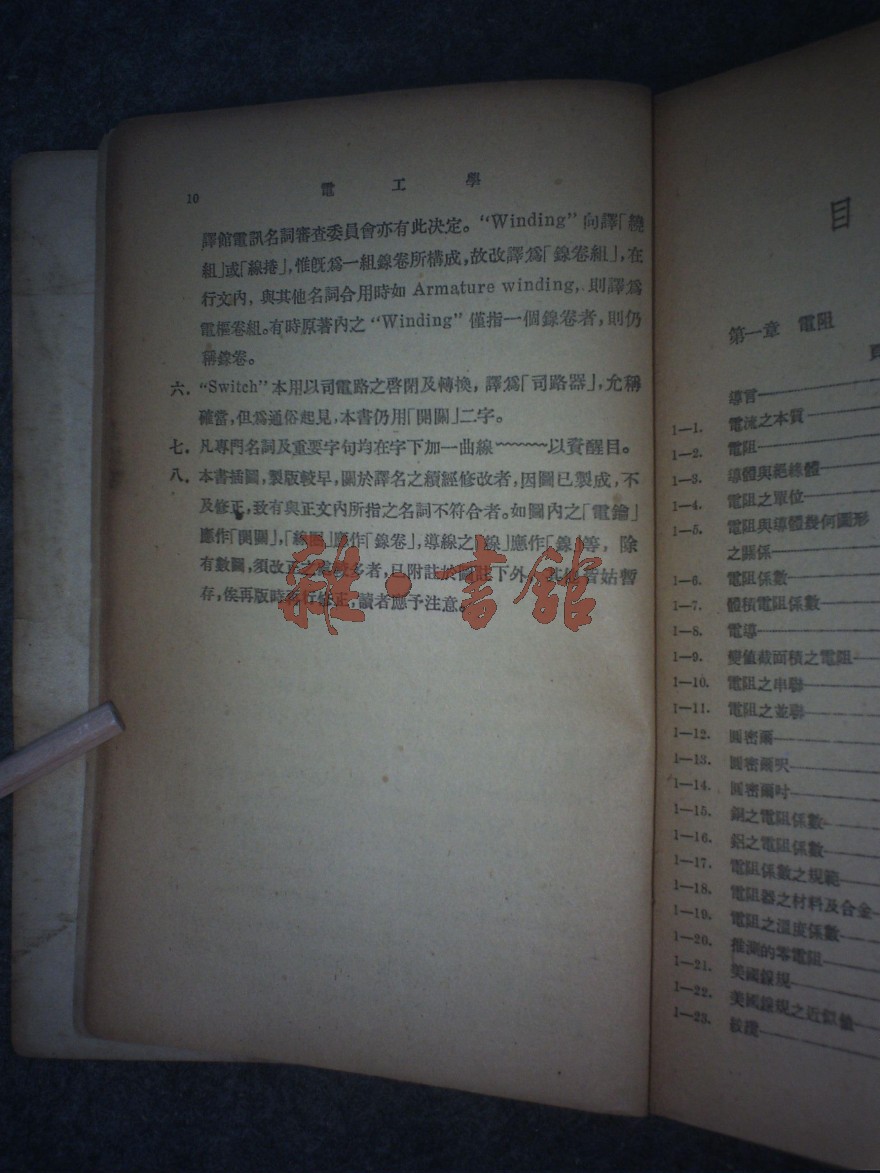 10
電工學
譯館電訊名詞審查委員會亦有此決定。“Winding”向譯「繞
組」或「線捲」，惟旣爲一組線卷所構成，故改譯爲「線卷組」，在
行文內，與其他名詞合用時如 Armature winding，則譯爲
電樞卷組。有時原著內之“Winding”僅指一個線卷者，則仍
稱線卷。
六．“Switch”本用以司電路之啓閉及轉換，譯爲「司路器」，允稱
確當，但爲通俗起見，本書仍用「開關」二字。
七．凡專門名詞及重要字句均在字下加一曲線~~~~~~~以資醒目。
八．本書插圖，製版較早，關於譯名之續經修改者，因圖已製成，不
及修正，致有與正文內所指之名詞不符合者。如圖內之「電鑰」
應作「開關」，「線圈」應作「線卷」，導線之「線」應作「線」等，除
有數圖，須改正之處較多者，已附註於圖註下外，其他皆姑暫
存，俟再版時再行修正，讀者應予注意。
雜·書館
目
第一章 電阻
頁
導言
1—1. 電流之本質
1—2. 電阻
1—3. 導體與絕緣體
1—4. 電阻之單位
1—5. 電阻與導體幾何圖形
之關係
1—6. 電阻係數
1—7. 體積電阻係數
1—8. 電導
1—9. 變值截面積之電阻
1—10. 電阻之串聯
1—11. 電阻之並聯
1—12. 圓密爾
1—13. 圓密爾呎
1—14. 圓密爾吋
1—15. 銅之電阻係數
1—16. 鋁之電阻係數
1—17. 電阻係數之規範
1—18. 電阻器之材料及合金
1—19. 電阻之溫度係數
1—20. 推測的零電阻
1—21. 美國線規
1—22. 美國線規之近似值
1—23. 絞纜